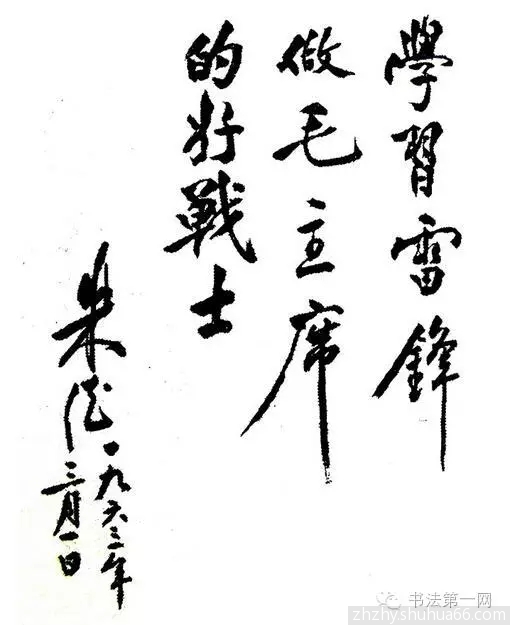 學習雷鋒
做毛主席
的好戰士
朱德
一九六三年
三月一日
书法第一网
zhzhyshuhua66.com